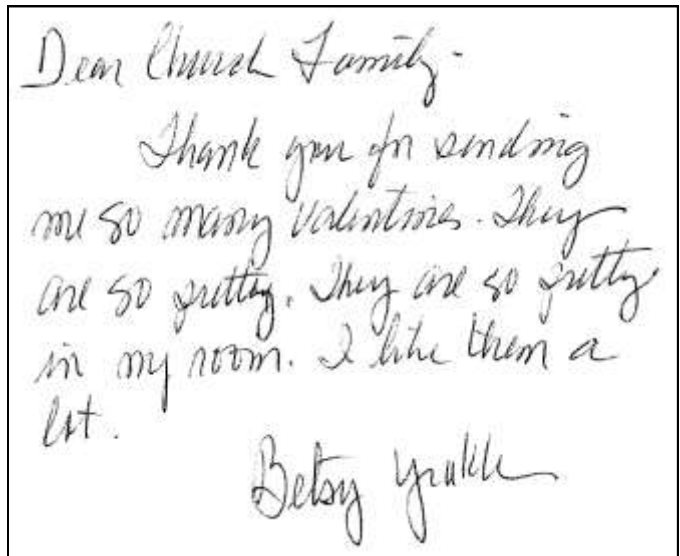 Dear Church Family-
Thank you for sending
me so many valentines. They
are so pretty. They are so pretty
in my room. I like them a
lot.
Betsy